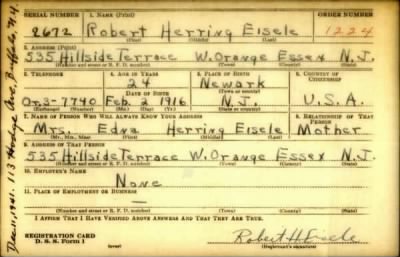 SERIAL NUMBER 1. NAME (Print) ORDER NUMBER
2672 Robert Herring Eisele 1224
(First) (Middle) (Last)
2. ADDRESS (Print)
535 Hillside Terrace W. Orange Essex N.J.
(Number and street or R. F. D. number) (Town) (County) (State)
3. TELEPHONE 4. AGE IN YEARS 5. PLACE OF BIRTH 6. COUNTRY OF CITIZENSHIP
24 Newark
DATE OF BIRTH (Town or county)
Or.3-7740 Feb. 2 1916 N.J. U.S.A.
(Exchange) (No.) (Mo.) (Day) (Yr.) (State or country)
7. NAME OF PERSON WHO WILL ALWAYS KNOW YOUR ADDRESS 8. RELATIONSHIP OF THAT PERSON
Mrs. Edna Herring Eisele Mother
(Mr., Mrs., Miss) (First) (Middle) (Last)
9. ADDRESS OF THAT PERSON
535 Hillside Terrace W. Orange Essex N.J.
(Number and street or R. F. D. number) (Town) (County) (State)
10. EMPLOYER'S NAME
None
11. PLACE OF EMPLOYMENT OR BUSINESS
—
(Number and street or R. F. D. number) (Town) (County) (State)
I AFFIRM THAT I HAVE VERIFIED ABOVE ANSWERS AND THAT THEY ARE TRUE.
REGISTRATION CARD
D. S. S. Form 1 Robert H Eisele
(Registrant's signature)
1941. 113 Ave. Buffalo, N.Y.